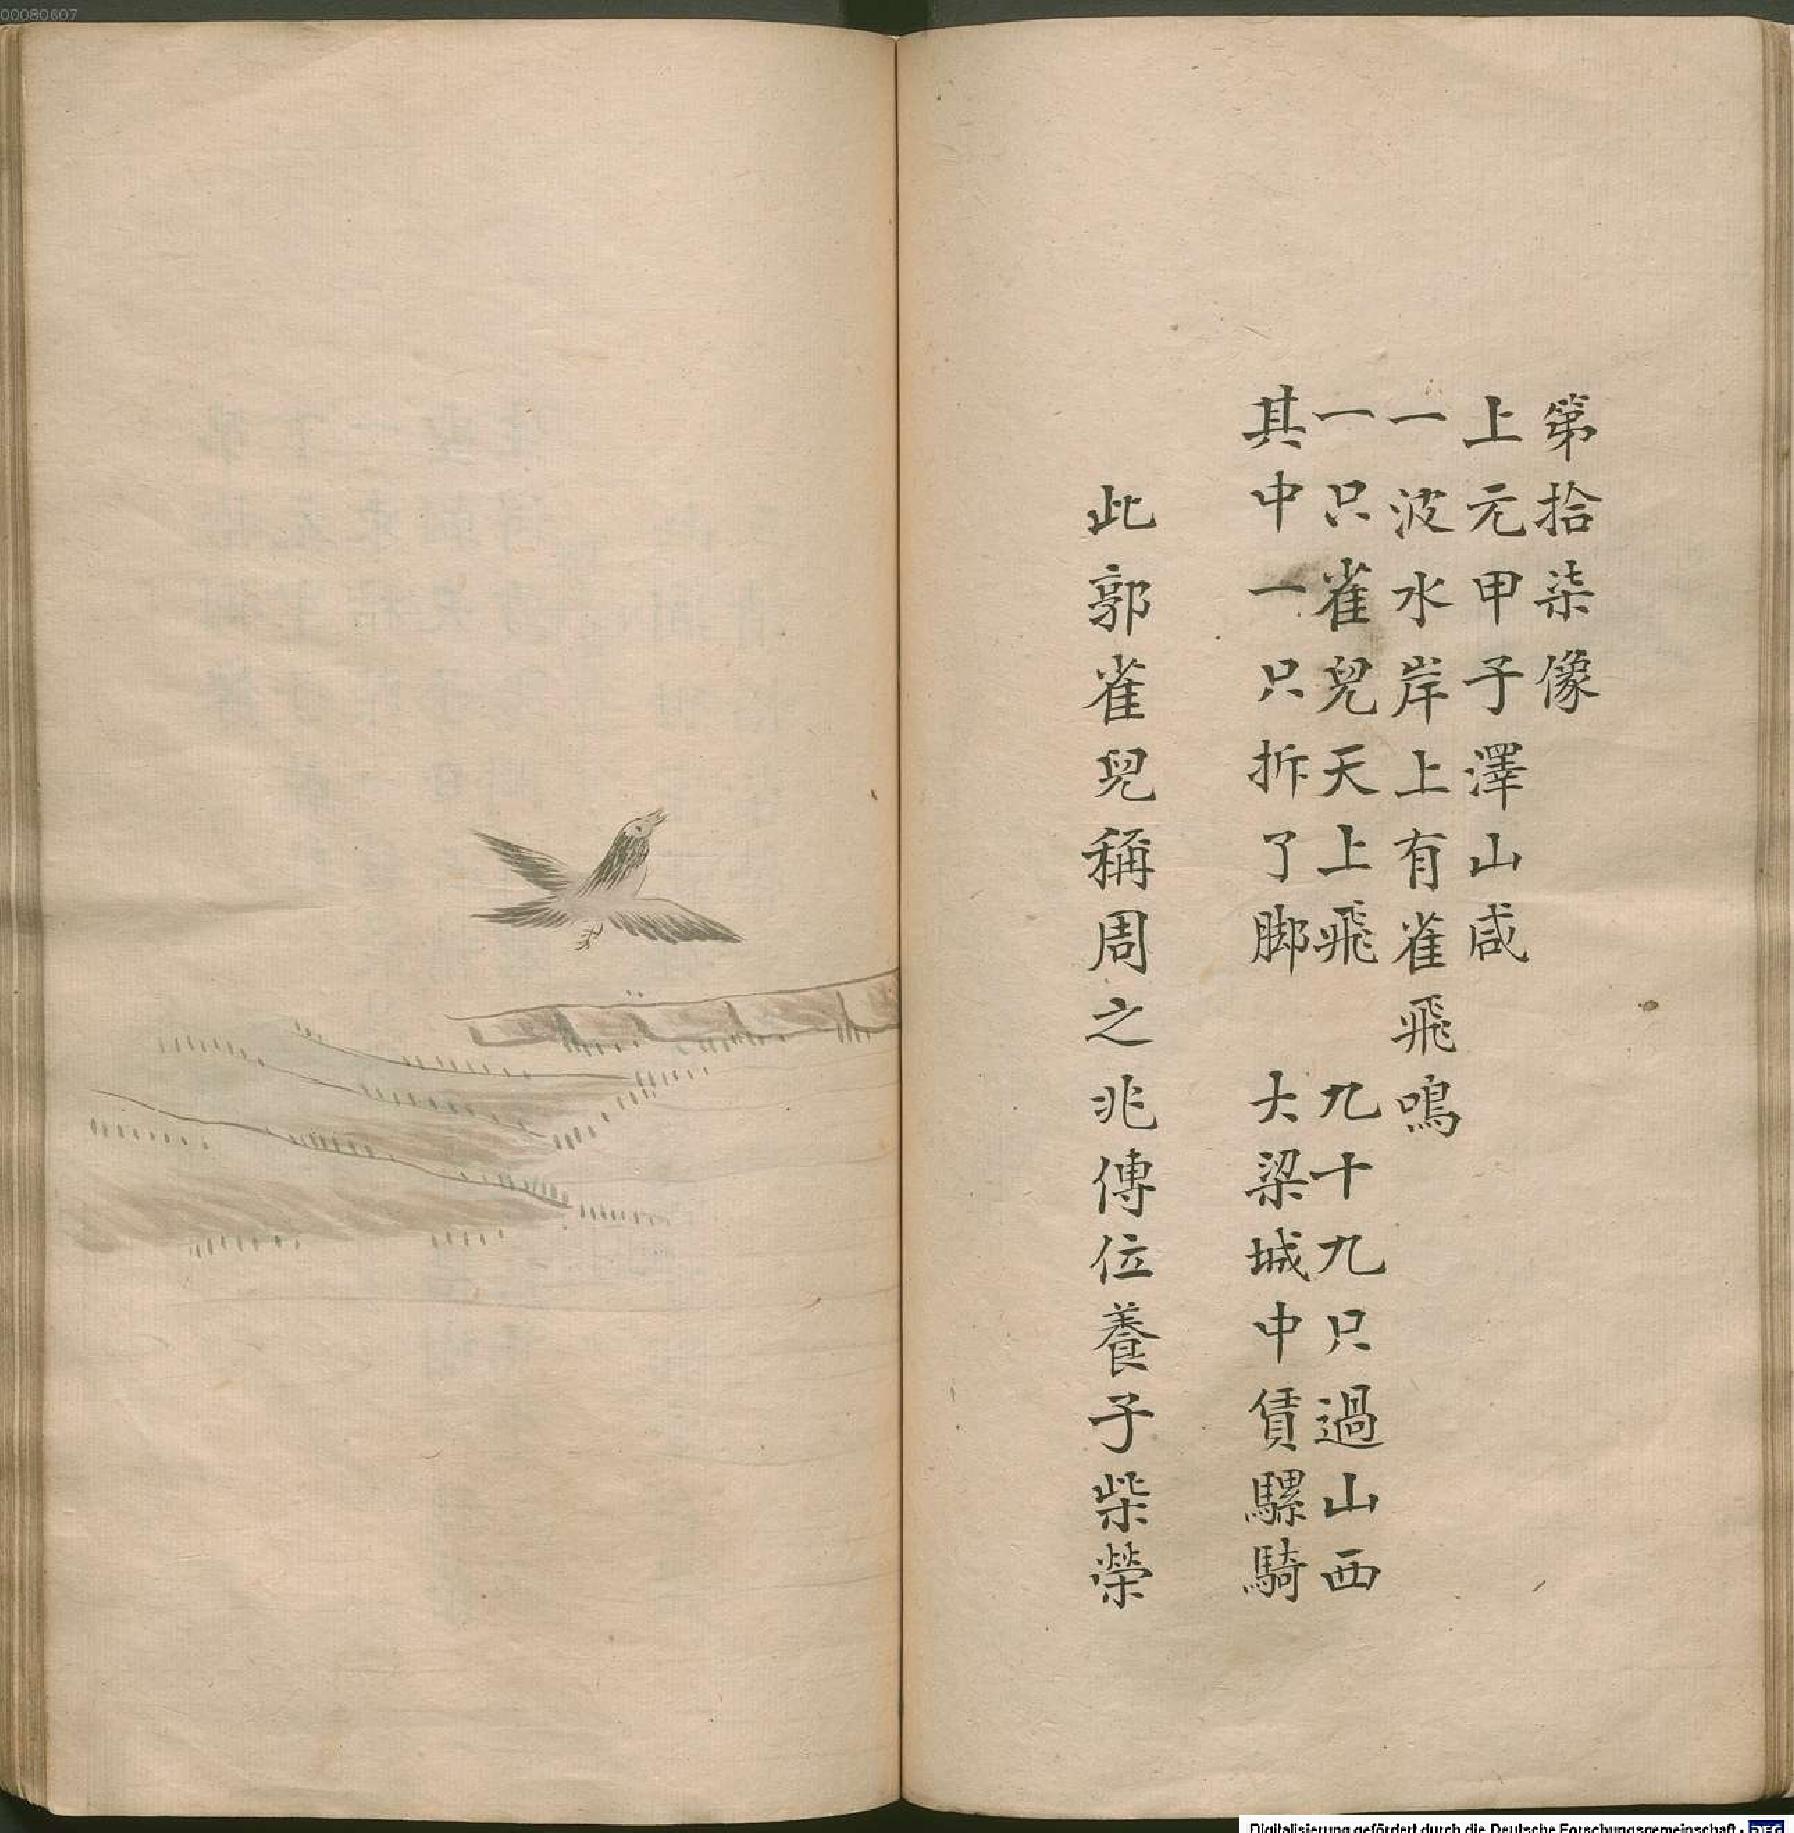 00080607
第拾柒像
上元甲子澤山咸
一波水岸上有雀飛鳴
一只雀兒天上飛　九十九只過山西
其中一只拆了脚　大梁城中賃騾騎
此郭雀兒稱周之兆傳位養子柴榮
Digitalisierung gefördert durch die Deutsche Forschungsgemeinschaft - DFG